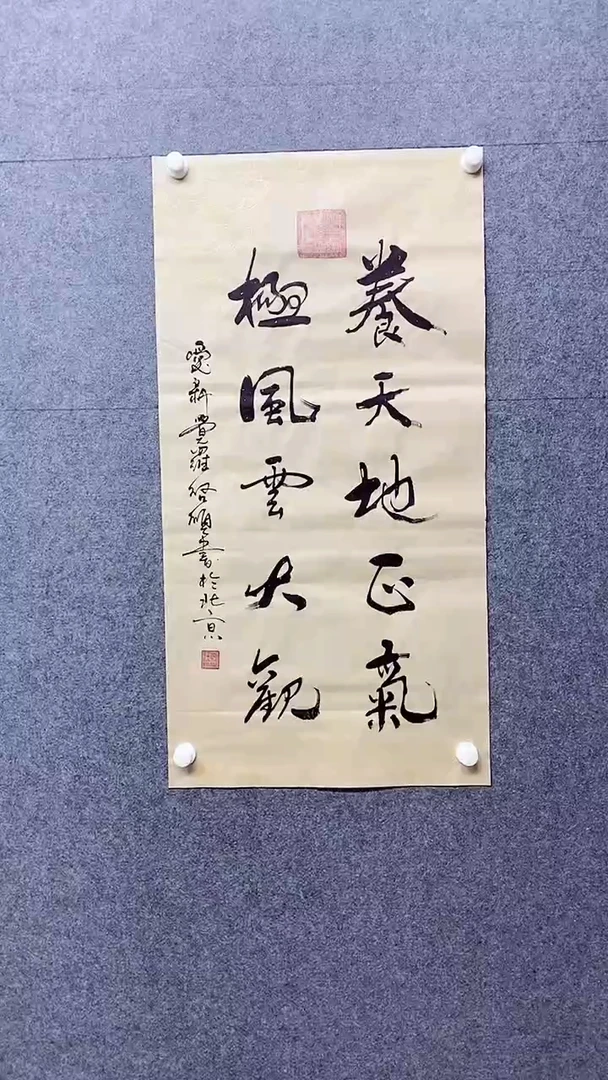 養天地正氣
極風雲大觀
愛新覺羅啟碩書於北京